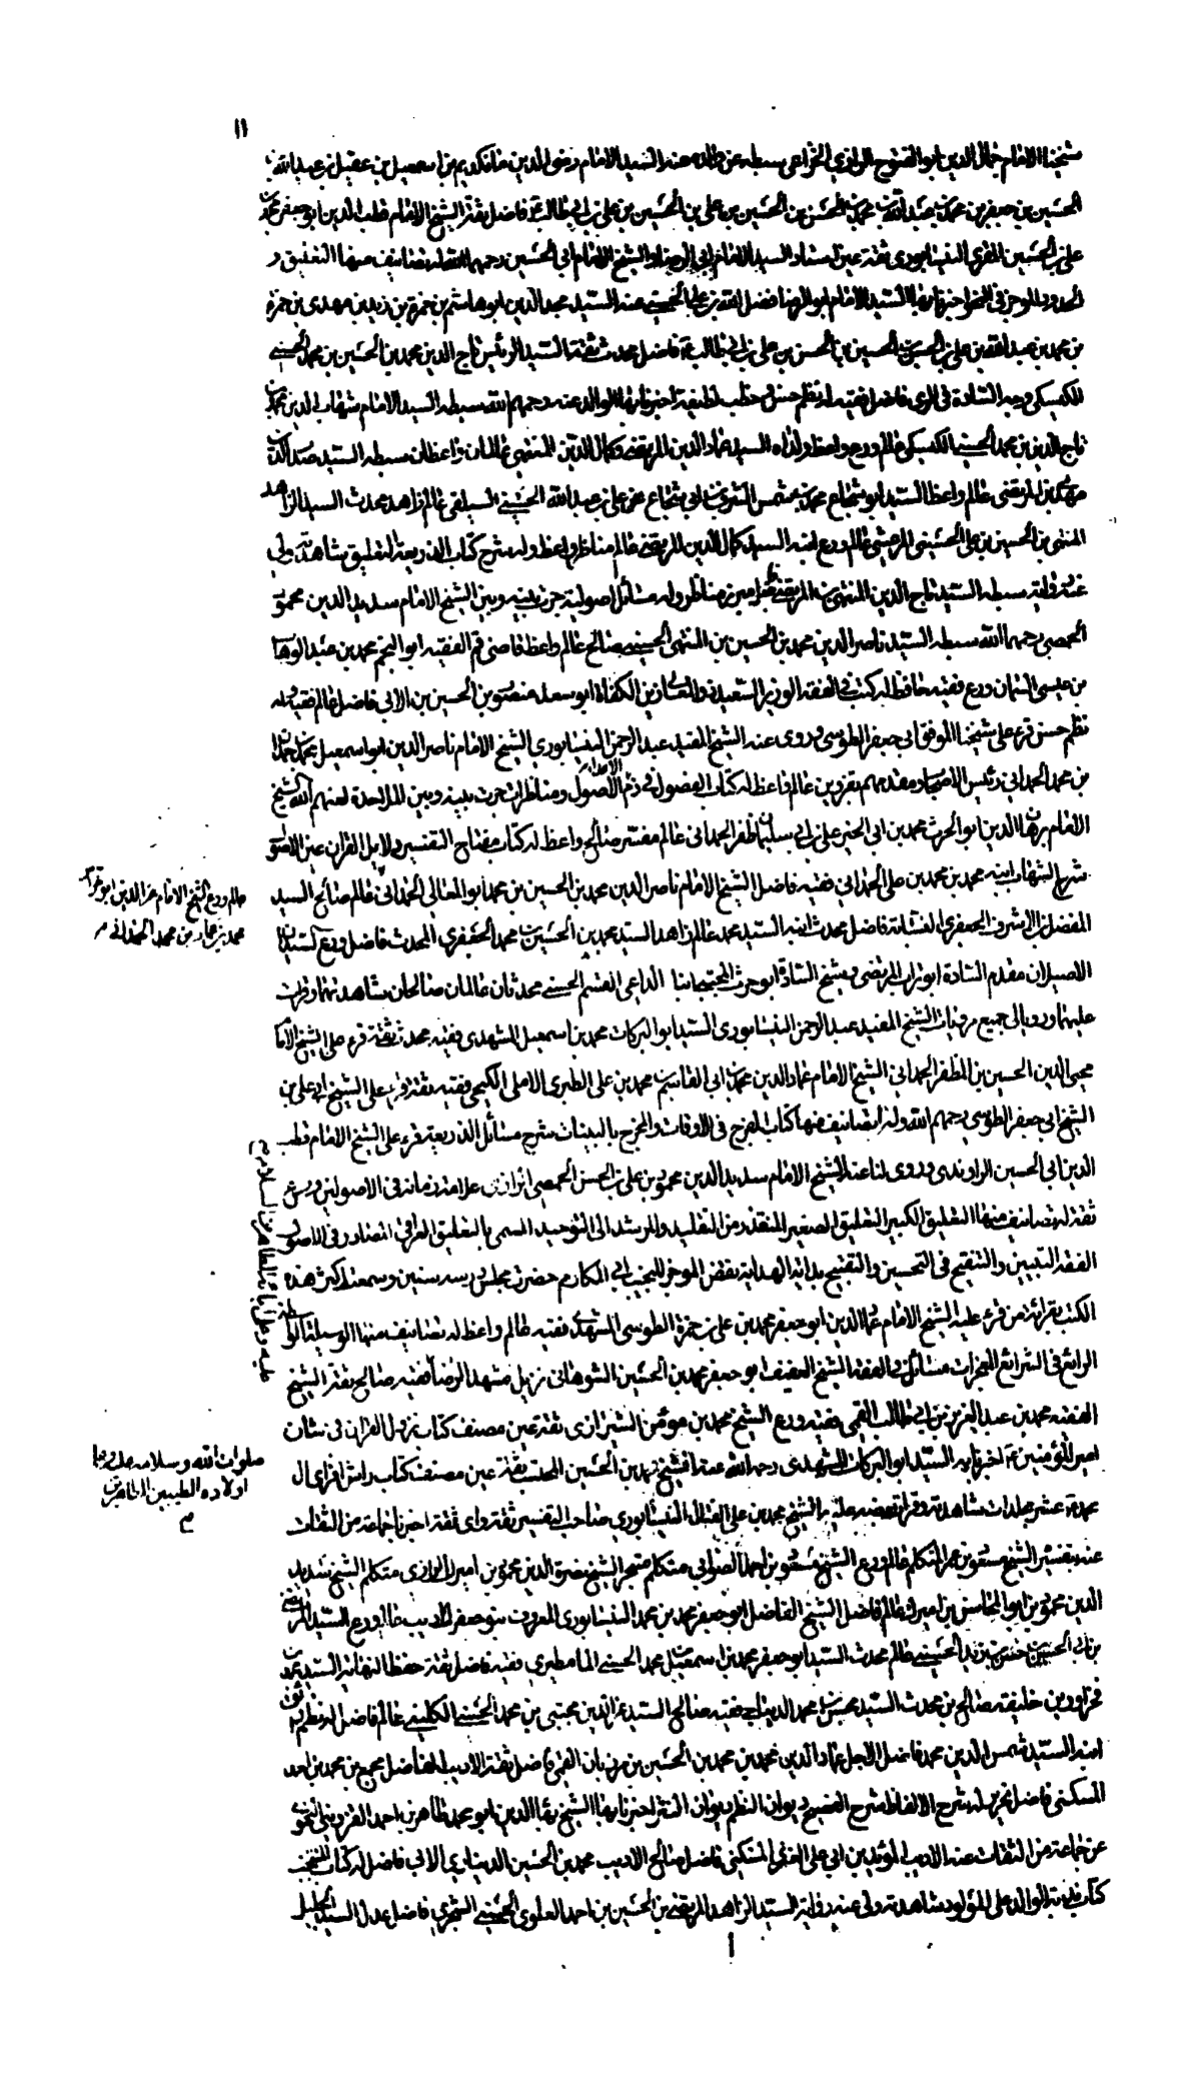 ١١
شيخنا الامام جمال الدين ابو الفتوح الرازي الخزاعي سبطه عن والده عنه السيد الامام رضى الدين مانكديم بن اسمعيل بن عقيل بن عبد الله بن
الحسين بن جعفر بن محمد بن عبد الله بن محمد بن الحسن بن الحسين بن على بن الحسين بن على بن ابي طالب ع فاضل ثقة الشيخ الامام قطب الدين ابو جعفر محمد بن
على بن الحسين المقرى النيسابورى ثقة عين استاد السيد الامام ابي الرضا والشيخ الامام ابي الحسين رحمهم الله له تصانيف منها التعليق و
الحدود الموجز في النحو اخبرنا بها السيد الامام ابو الرضا فضل الله بن على الحسني عنه السيد مجد الدين ابو هاشم بن حمزة بن زيد بن مهدى بن حمزة
بن محمد بن عبد الله بن على بن الحسن بن الحسين بن الحسن بن على بن ابي طالب ع فاضل محدث ثقة السيد الرئيس تاج الدين محمد بن الحسين بن محمد الحسيني
الكيسكي وجه السادة في الرى فاضل فقيه له نظم حسن وخطب لطيفة اخبرنا بها الوالد عنه رحمهم الله سبطه السيد الامام شهاب الدين محمد بن
تاج الدين بن محمد الحسيني الكيسكي عالم ورع واعظ ولداه السيد عماد الدين المرتضى وكمال الدين المنتهى عالمان واعظان سبطه السيد صدر الدين
مهدي بن المرتضى عالم واعظ السيد ابو شجاع محمد بن شمس الشرف بن ابي شجاع عن على بن عبد الله الحسيني السيلقي عالم زاهد محدث السيد الزاهد
المنتهى بن الحسين بن على الحسيني المرعشى عالم ورع ابنه السيد كمال الدين المرتضى عالم مناظر واعظ وله شرح كتاب الذريعة التعليق شاهدته ولي
عنه رواية سبطه السيد تاج الدين المنتهى بن المرتضى مناظر وله مسائل اصولية جرت بينه وبين الشيخ الامام سديد الدين محمود
الحمصي رحمهما الله سبطه السيد ناصر الدين محمد بن الحسين بن المنتهى الحسيني صالح عالم واعظ قاضى قم الفقيه ابو النجم محمد بن عبد الوهاب
بن عيسى السمان ورع فقيه حافظ له كتب في الفقه الوزير السعيد ذو المعالي زين الكفاة ابو سعد منصور بن الحسين بن الابي فاضل عالم فقيه له
نظم حسن قرء على شيخنا الموفق ابي جعفر الطوسى وروى عنه الشيخ المفيد عبد الرحمن النيسابوري الشيخ الامام ناصر الدين ابو اسمعيل محمد بن حمدان
بن محمد الحمداني رئيس الاصحاب ومقدمهم بقزوين عالم واعظ له كتاب الفصول في ذم الاعداء الاصول ومناظرات جرت بينه وبين الملاحدة لعنهم الله الشيخ
الامام برهان الدين ابو الحرث محمد بن ابي الخير على بن ابي سليمان ظفر الحمداني عالم مفسر صالح واعظ له كتاب مفتاح التفسير دلايل القران عين الاصول
شرح الشهاب ابنه محمد بن محمد بن على الحمداني فقيه فاضل الشيخ الامام ناصر الدين محمد بن الحسين بن محمد ابو المعالي الحمداني عالم صالح السيد
عالم ورع الشيخ الامام عز الدين ابو
محمد بن عماد بن محمد الحمداني
المفضل بن الاشرف الجعفري النسابة فاضل محدث ابنه السيد محمد عالم زاهد السيد محمد بن الحسين بن محمد الجعفري المحدث فاضل ورع السيدان
الاصيلان مقدم السادة ابو تراب المرتضى وشيخ السادة ابو حرب المجتبى ابنا الداعى القسم الحسيني محدثان عالمان صالحان شاهدتهما وقرات
عليهما ورويا لى جميع مرويات الشيخ المفيد عبد الرحمن النيسابورى السيد ابو البركات محمد بن اسمعيل المشهدى فقيه محدث ثقة قرء على الشيخ الامام
محيى الدين الحسين بن المظفر الحمداني الشيخ الامام عماد الدين محمد بن ابي القاسم محمد بن على الطبرى الاملى الكيجى فقيه ثقة قرء على الشيخ ابي على بن
الشيخ ابي جعفر الطوسي رحمهم الله وله تصانيف منها كتاب الفرج في الاوقات والمخرج بالبينات شرح مسائل الذريعة قرء على الشيخ الامام قطب
الدين ابي الحسين الراوندى وروى لنا عنه الشيخ الامام سديد الدين محمود بن على بن الحسن الحمصي الرازى علامة زمانه في الاصولين ورع
ثقة له تصانيف منها التعليق الكبير التعليق الصغير المنقذ من التقليد والمرشد الى التوحيد المسمى بالتعليق العراقى المصادر في اصول
الفقه التبيين والتنقيح في التحسين والتقبيح بداية الهداية نقض الموجز للنجيب ابي المكارم حضرت مجلس درسه سنين وسمعت اكثر هذه
الكتب بقرائة من قرء عليه الشيخ الامام عماد الدين ابو جعفر محمد بن على بن حمزة الطوسى المشهدى فقيه عالم واعظ له تصانيف منها الوسيلة الواسطة
الرائع في الشرائع المعجزات مسائل في الفقه الشيخ العفيف ابو جعفر محمد بن الحسين الشوهانى نزيل مشهد الرضا ع فقيه صالح ثقة الشيخ
عليه وعلى ابائه الطاهرين السلام
الفقيه محمد بن عبد العزيز بن ابي طالب القمى فقيه ورع الشيخ محمد بن مؤمن الشيرازى ثقة عين مصنف كتاب نزول القران في شان
امير المؤمنين ع اخبرنا به السيد ابو البركات المشهدى رحمه الله عنه الشيخ محمد بن الحسين المحتسب ثقة عين مصنف كتاب رامش افزاى ال
صلوات الله وسلامه عليه وعلى
اولاده الطيبين الطاهرين
محمد ع عشر مجلدات شاهدته وقرات بعضه عليه الشيخ محمد بن على الفتال النيسابوري صاحب التفسير ثقة واى ثقة اخبرنا جماعة من الثقات
عنه بتفسيره الشيخ مسعود بن محمد المتكلم عالم ورع الشيخ مسعود بن احمد الصوابي متكلم متبحر الشيخ نصرة الدين محمود بن اميرك الرازى متكلم الشيخ سديد
الدين محمود بن ابو المحاسن بن اميرك عالم فاضل الشيخ الفاضل ابو جعفر محمد بن محمد النيسابورى المعروف ببو جعفرك الاديب عالم ورع السيد المرتضى
بن ابي الحسين الحسيني عالم محدث السيد ابو جعفر محمد بن اسمعيل بن محمد الحسيني المامطيرى فقيه فاضل ثقة حفظ النهاية السيد محمد بن
خليفة صالح محدث السيد محسن بن محمد الديباجى فقيه صالح السيد عز الدين مجتبى بن محمد الحسيني الكليني عالم فاضل له نظم رائق
ابنه السيد شمس الدين محمد فاضل الاجل عماد الدين محمد بن محمد بن الحسين بن مرزبان القمى فاضل ثقة الاديب الفاضل مجمع بن محمد بن احمد
المسكنى فاضل متبحر له شرح الالفاظ شرح الفصيح ديوان النظم ديوان النثر اخبرنا بها الشيخ بهاء الدين ابو محمد طاهر بن احمد القزويني النحوى
عن جماعة من الثقات عنه الاديب المؤيد بن ابي على المسكني فاضل صالح الاديب محمد بن الحسين الديناري الابي فاضل له كتاب المنتخب
كتاب الوالد على المولود شاهدته ولى عنه رواية السيد الزاهد المرتضى بن الحسين بن احمد العلوى الحسيني الشجرى فاضل عدل السيد الجليل